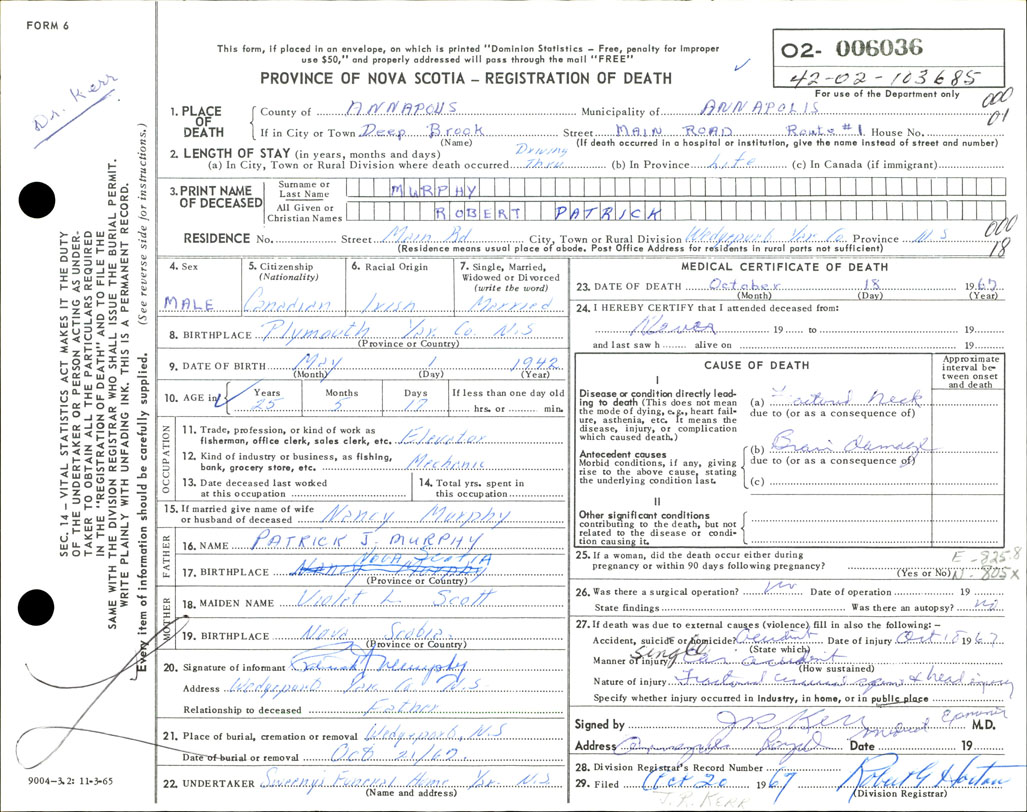 FORM 6
Dr. Kerr
This form, if placed in an envelope, on which is printed "Dominion Statistics – Free, penalty for improper
use $50," and properly addressed will pass through the mail "FREE"
PROVINCE OF NOVA SCOTIA – REGISTRATION OF DEATH
02- 006036
42-02-103685
For use of the Department only
000
01
1. PLACE OF DEATH
County of ANNAPOLIS Municipality of ANNAPOLIS
If in City or Town Deep Brook Street MAIN ROAD Route #1 House No.
(Name) (If death occurred in a hospital or institution, give the name instead of street and number)
2. LENGTH OF STAY (in years, months and days) Driving
(a) In City, Town or Rural Division where death occurred Thru (b) In Province Life (c) In Canada (if immigrant)
3. PRINT NAME OF DECEASED
Surname or Last Name MURPHY
All Given or Christian Names ROBERT PATRICK
000
18
RESIDENCE No. Street Main Rd City, Town or Rural Division Wedgeport Yar. Co. Province N.S
(Residence means usual place of abode. Post Office Address for residents in rural parts not sufficient)
4. Sex MALE
5. Citizenship (Nationality) Canadian
6. Racial Origin Irish
7. Single, Married, Widowed or Divorced (write the word) Married
8. BIRTHPLACE Plymouth Yar. Co. N.S
(Province or Country)
9. DATE OF BIRTH May 1 1942
(Month) (Day) (Year)
10. AGE in Years 25 Months 5 Days 17 If less than one day old
hrs. or min.
OCCUPATION
11. Trade, profession, or kind of work as
fisherman, office clerk, sales clerk, etc. Elevator
12. Kind of industry or business, as fishing,
bank, grocery store, etc. Mechanic
13. Date deceased last worked
at this occupation
14. Total yrs. spent in
this occupation
15. If married give name of wife
or husband of deceased Nancy Murphy
FATHER
16. NAME PATRICK J. MURPHY
NOVA SCOTIA
17. BIRTHPLACE Nancy Murphy
(Province or Country)
MOTHER
18. MAIDEN NAME Violet L Scott
19. BIRTHPLACE Nova Scotia
(Province or Country)
20. Signature of informant Patrick J Murphy
Address Wedgeport Yar. Co. N.S
Relationship to deceased Father
21. Place of burial, cremation or removal Wedgeport, N.S
Date of burial or removal Oct 21/67
22. UNDERTAKER Sweeny's Funeral Home Yar. N.S.
(Name and address)
MEDICAL CERTIFICATE OF DEATH
23. DATE OF DEATH October 18 1967
(Month) (Day) (Year)
24. I HEREBY CERTIFY that I attended deceased from:
Never 19 to 19
and last saw h alive on 19
CAUSE OF DEATH
Approximate interval between onset and death
I
Disease or condition directly leading to death (This does not mean the mode of dying, e.g., heart failure, asthenia, etc. It means the disease, injury, or complication which caused death.)
(a) Fractured Neck
due to (or as a consequence of)
Antecedent causes
Morbid conditions, if any, giving rise to the above cause, stating the underlying condition last.
(b) Brain Damage
due to (or as a consequence of)
(c)
II
Other significant conditions
contributing to the death, but not related to the disease or condition causing it.
25. If a woman, did the death occur either during
pregnancy or within 90 days following pregnancy?
(Yes or No)
E-825.8
N-805X
26. Was there a surgical operation? no Date of operation 19
State findings Was there an autopsy? no
27. If death was due to external causes (violence) fill in also the following:–
Accident, suicide or homicide Accident Date of injury Oct 18 1967
(State which)
Manner of injury Single Car accident
(How sustained)
Nature of injury Fractured cervical spine & head injury
Specify whether injury occurred in industry, in home, or in public place
Signed by J R Kerr Medical Examiner M.D.
Address Annapolis Royal Date 19
28. Division Registrar's Record Number
29. Filed Oct 20 1967 Robert G Horton
J. R. KERR (Division Registrar)
SEC. 14 – VITAL STATISTICS ACT MAKES IT THE DUTY
OF THE UNDERTAKER OR PERSON ACTING AS UNDER-
TAKER TO OBTAIN ALL THE PARTICULARS REQUIRED
IN THE "REGISTRATION OF DEATH" AND TO FILE THE
SAME WITH THE DIVISION REGISTRAR WHO SHALL ISSUE THE BURIAL PERMIT.
WRITE PLAINLY WITH UNFADING INK. THIS IS A PERMANENT RECORD.
Every item of information should be carefully supplied. (See reverse side for instructions.)
9004-3.2: 11-3-65